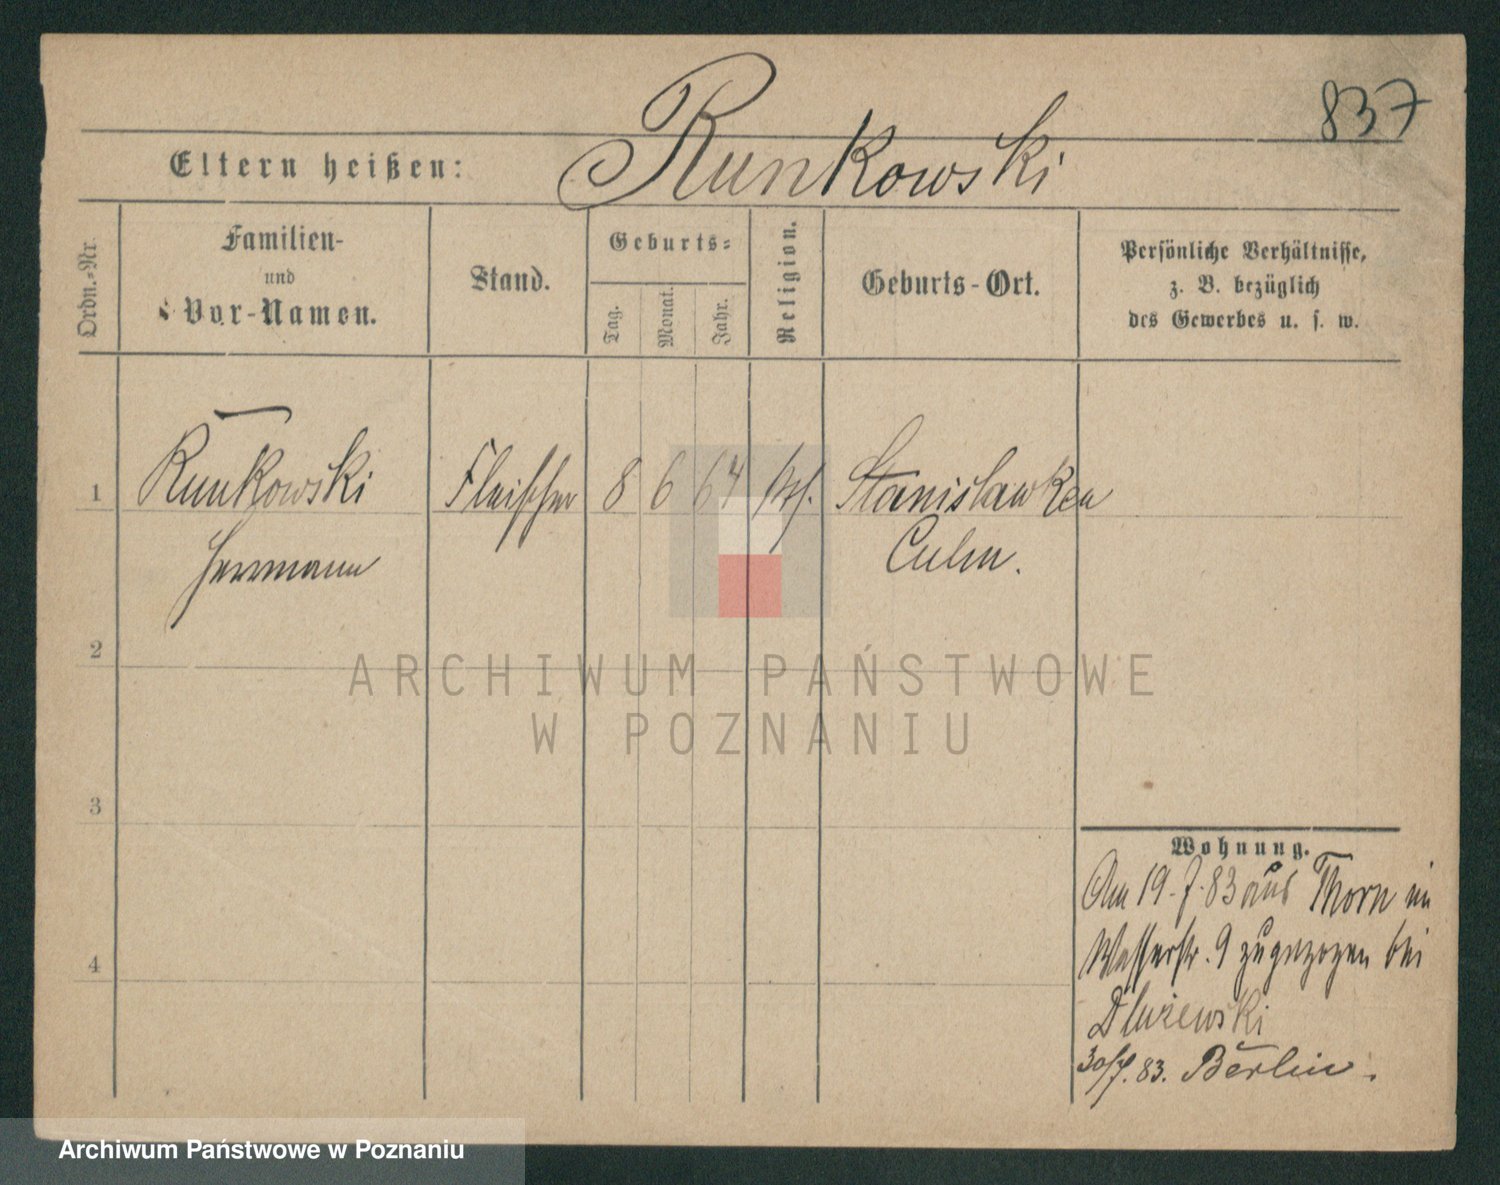 837
Eltern heißen: Runkowski
Ordn.-Nr.
Familien-
und
Vor-Namen.
Stand.
Geburts-
Tag.
Monat.
Jahr.
Religion.
Geburts-Ort.
Persönliche Verhältnisse,
z. B. bezüglich
des Gewerbes u. s. w.
1 Runkowski Fleischer 8 6 64 Stanislawken
Herrmann Culm.
2
3
4
Wohnung.
Am 19. 7. 83 aus Thorn in
Wasserstr. 9 zugezogen bei
Dluzewski
30/7. 83. Berlin.
ARCHIWUM PAŃSTWOWE
W POZNANIU
Archiwum Państwowe w Poznaniu